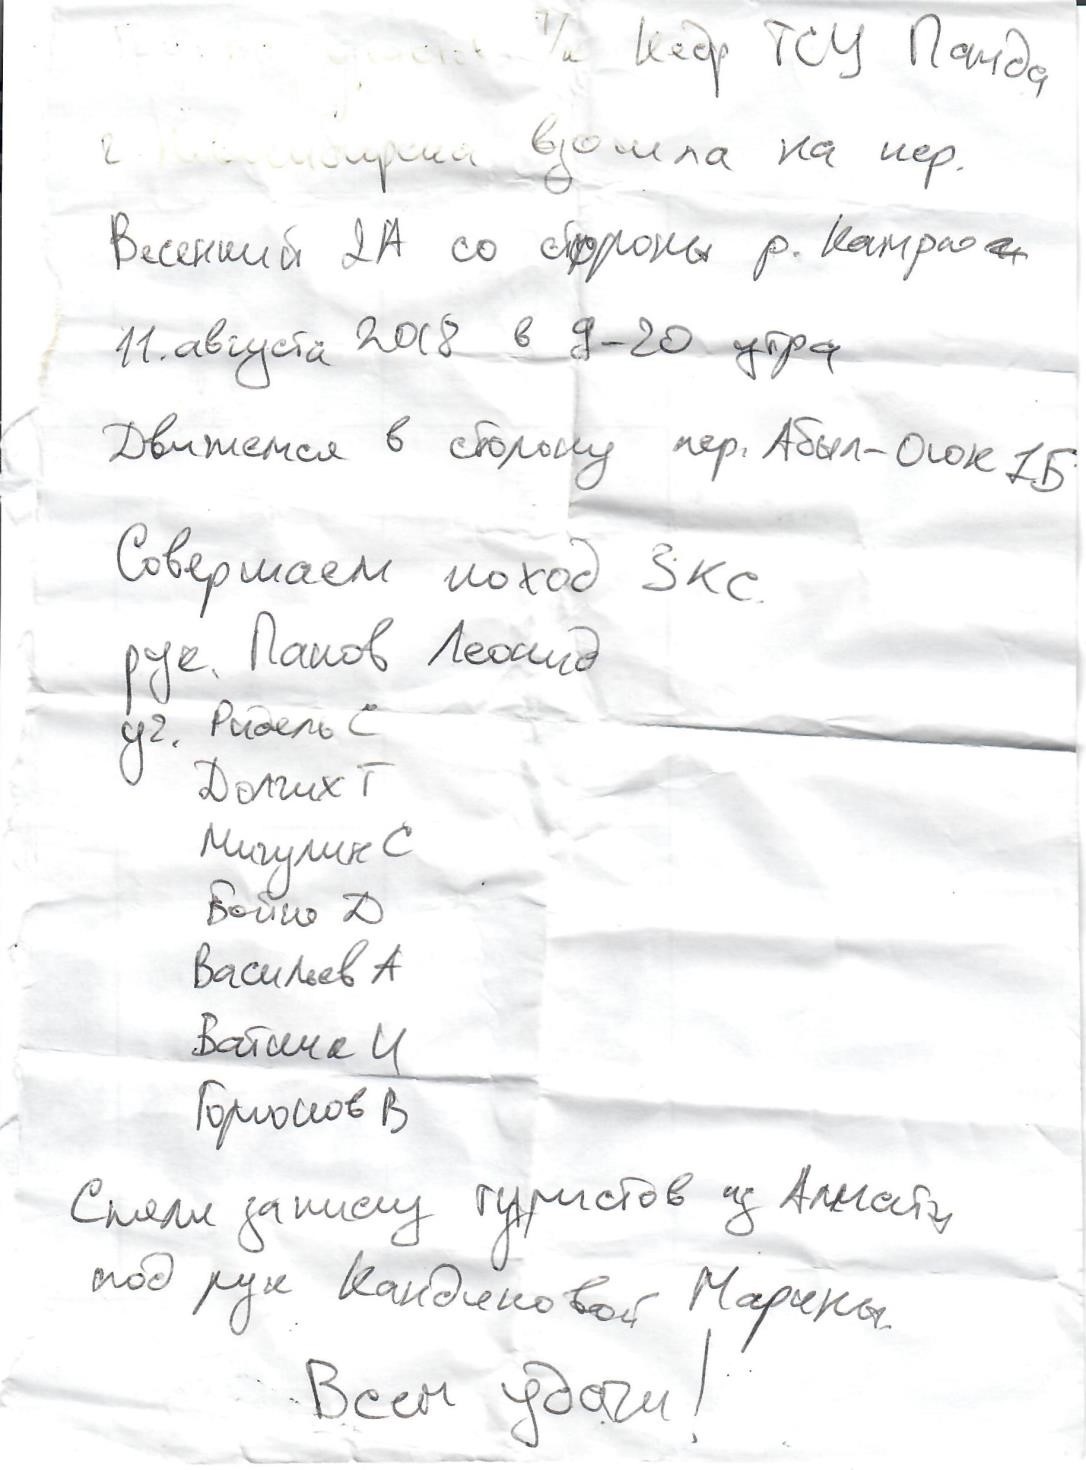 т/к Кедр ТСУ Панда
г. Новосибирска взошла на пер.
Весенний 2А со стороны р.
11. августа 2018 в 9-20 утра
Движемся в сторону пер. Абыл-Оюк 1Б
Совершаем поход 3 КС.
рук. Панов Леонид
уч. Ридель С
Долгих Т
Мигулин С
Бойко Д
Васильев А
Ватина И
Горюнов В
Сняли записку туристов из Алматы
под рук Кандиновой Марины.
Всем удачи!